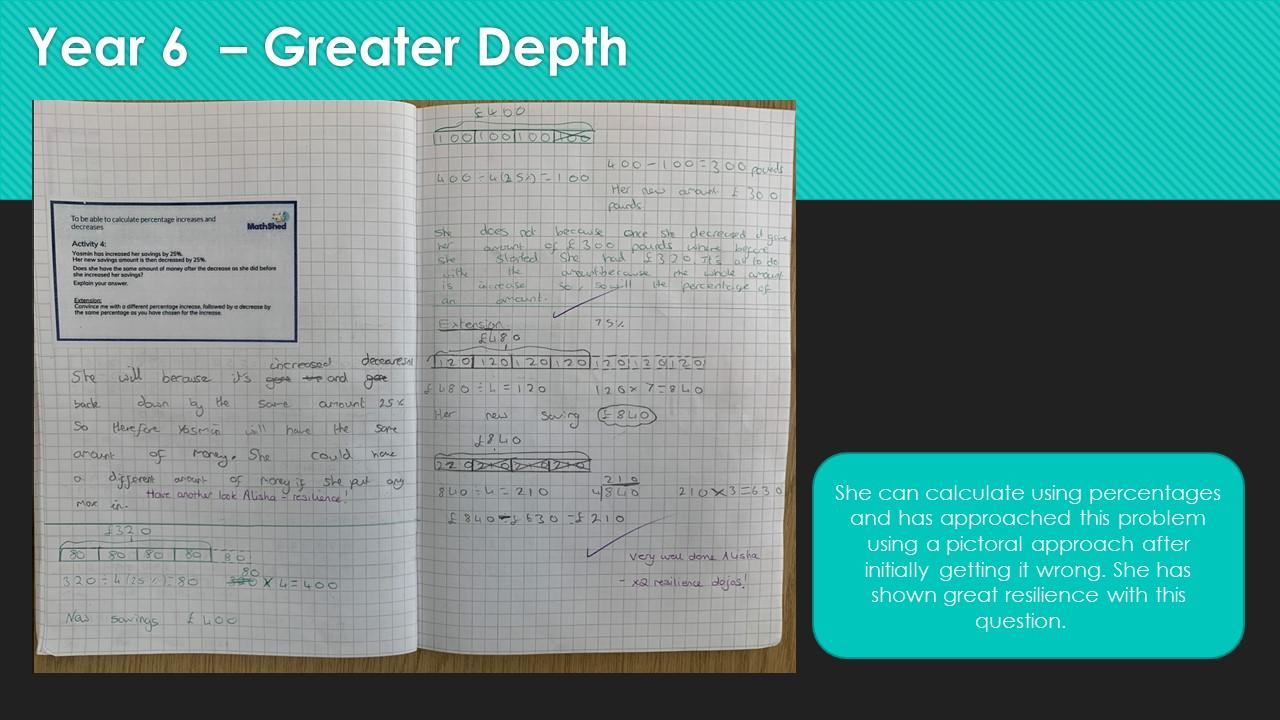 Year 6 – Greater Depth
To be able to calculate percentage increases and
decreases
MathShed
Activity 4:
Yasmin has increased her savings by 25%.
Her new savings amount is then decreased by 25%.
Does she have the same amount of money after the decrease as she did before
she increased her savings?
Explain your answer.
Extension:
Convince me with a different percentage increase, followed by a decrease by
the same percentage as you have chosen for the increase.
increased decreased
She will because it's gone up and gone
back down by the same amount 25%
So therefore Yasmin will have the same
amount of money. She could have
a different amount of money if she put any
Have another look Alisha - resilience!
more in.
£320
80 80 80 80 80
80
320÷4(25%)=80 × 4=400
New savings £400
£400
100 100 100 100
400-100=300 pounds
400÷4(25%)=100
Her new amount £300
pounds
She does not because once she decreased it gave
her amount of £300 pounds where before
she started she had £320 It's all to do
with the amount because the whole amount
is increase so, so will the percentage of
an amount.
Extension 75%
£480
120 120 120 120 120 120 120
£480÷4=120 120×7=840
Her new saving £840
£840
210 210 210
840÷4=210 210 4 840 210×3=630
£840-£630=£210
Very well done Alisha
- x2 resilience dojos!
She can calculate using percentages
and has approached this problem
using a pictoral approach after
initially getting it wrong. She has
shown great resilience with this
question.